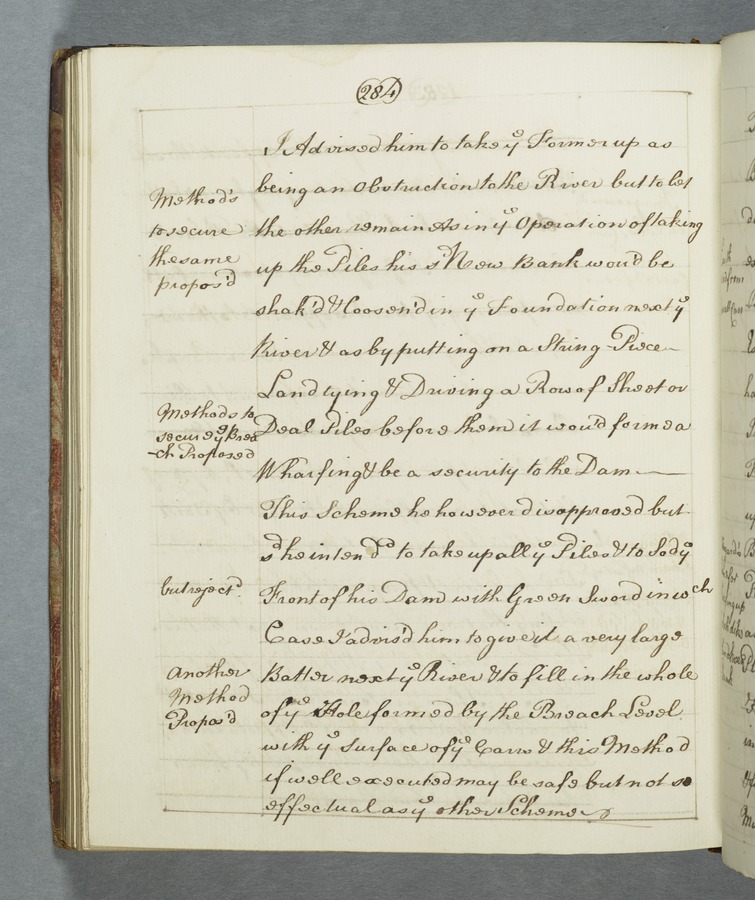 284
I Advised him to take yᵉ Former up as
being an Obstruction to the River but to let
the other remain As in yᵉ Operation of taking
up the Piles his sᵈ New Bank wou'd be
shak'd & Loosen'd in yᵉ Foundation next yᵉ
River & as by putting on a String-Piece
Land tying & Driving a Row of Sheet or
Deal Piles before them it wou'd form a
Wharfing & be a security to the Dam
This Scheme he however disapproved but
sᵈ he intend'd to take up all yᵉ Piles & to Sod yᵉ
Front of his Dam with Green Sword in wch
Case I advis'd him to give it a very large
Batter next yᵉ River & to fill in the whole
of yᵉ Hole formed by the Breach Level
with yᵉ Surface of yᵉ Carrs & this Method
if well executed may be safe but not so
effectual as yᵉ other Scheme
Method's
to secure
the same
propos'd
Methods to
secure yᵉ Brea
-ch Proposed
but reject'd
Another
Method
Propos'd